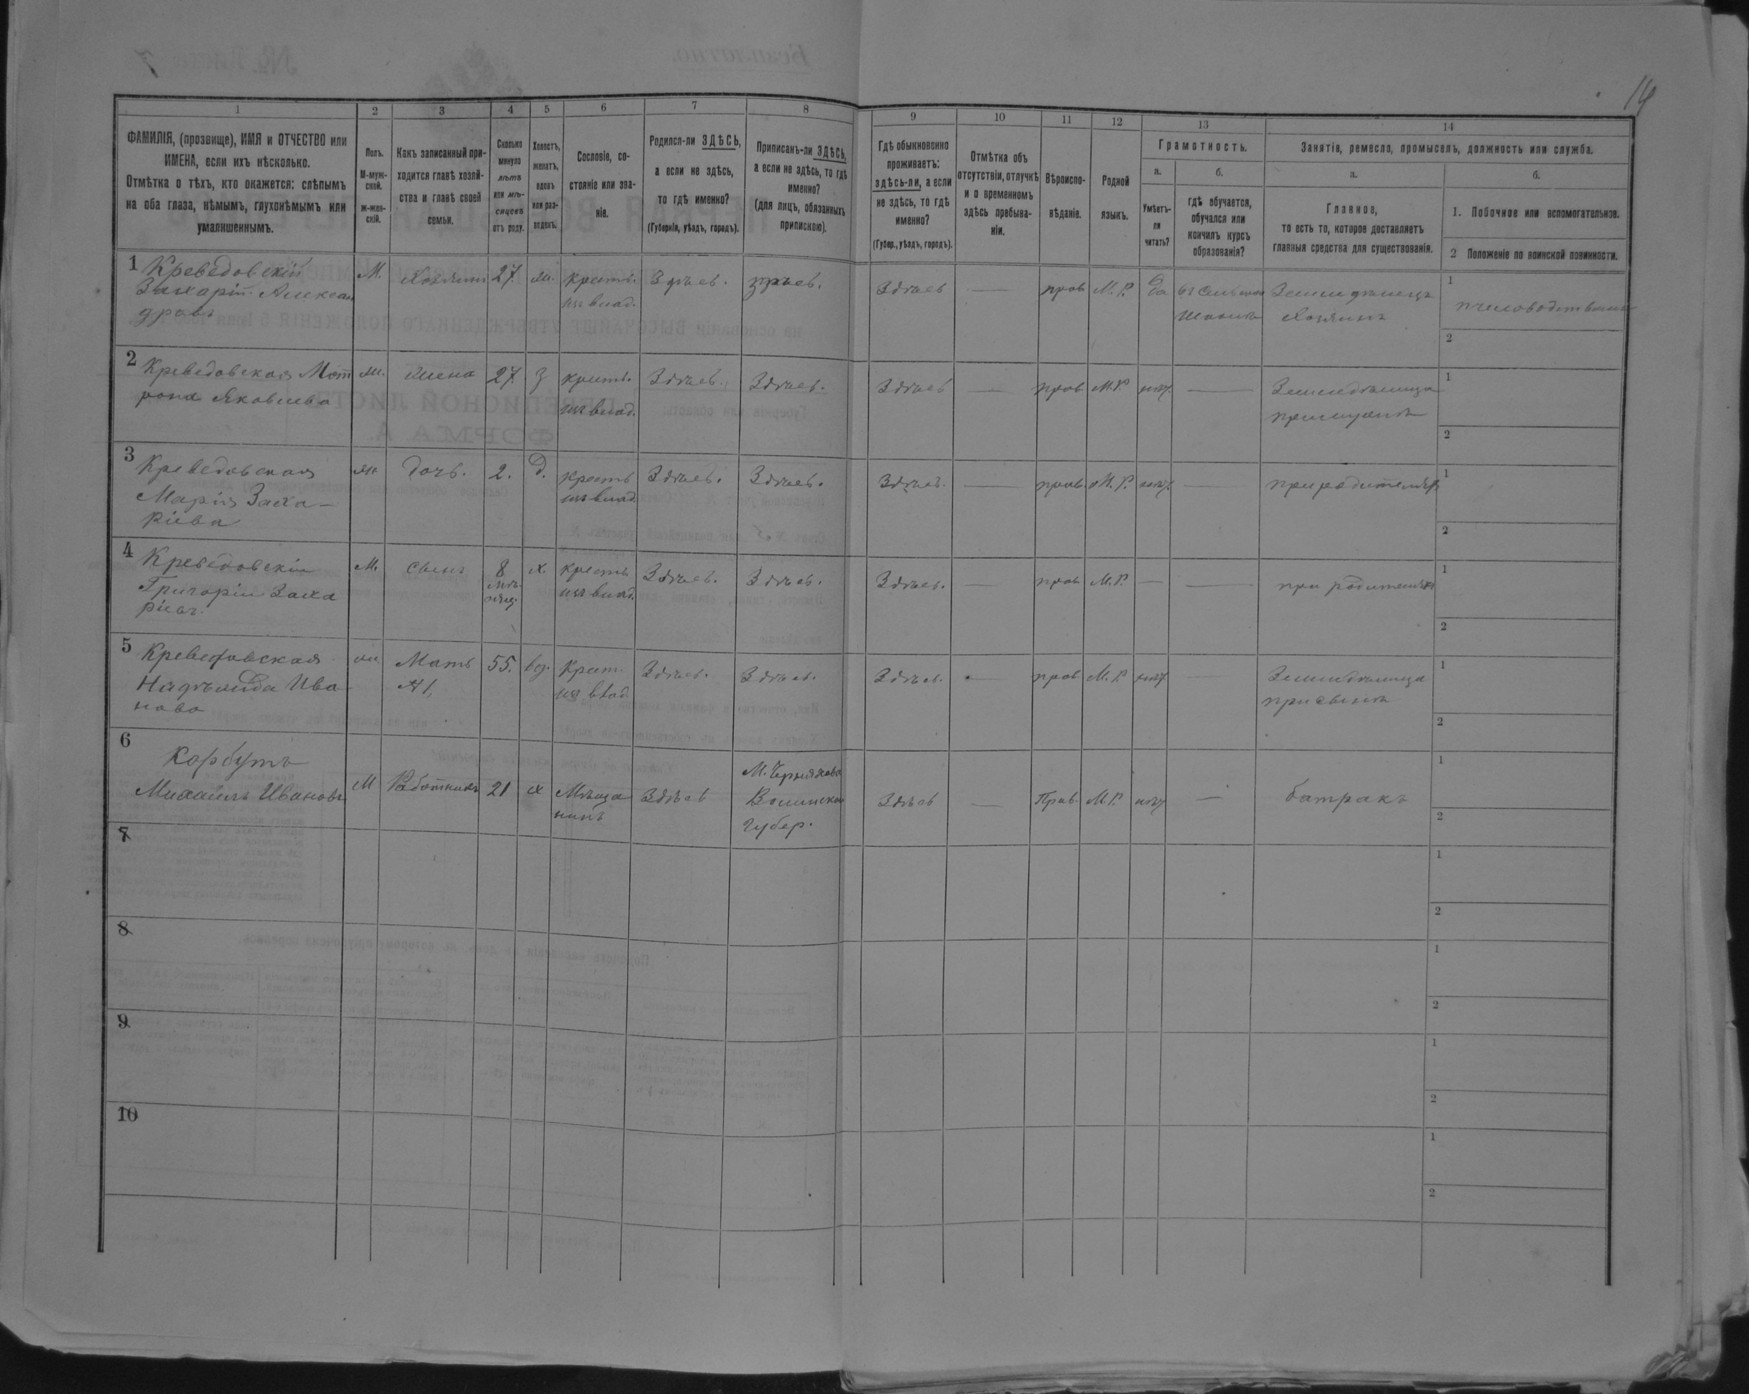 14
1 2 3 4 5 6 7 8 9 10 11 12 13 14
ФАМИЛІЯ, (прозвище), ИМЯ и ОТЧЕСТВО или
ИМЕНА, если ихъ нѣсколько.
Отмѣтка о тѣхъ, кто окажется: слѣпымъ
на оба глаза, нѣмымъ, глухонѣмымъ или
умалишеннымъ.
Полъ.
М-муж-
ской.
ж-жен-
скій.
Какъ записанный при-
ходится главѣ хозяй-
ства и главѣ своей
семьи.
Сколько
минуло
лѣтъ
или мѣ-
сяцевъ
отъ роду.
Холостъ,
женатъ,
вдовъ
или раз-
веденъ.
Сословіе, со-
стояніе или зва-
ніе.
Родился-ли ЗДѢСЬ,
а если не здѣсь,
то гдѣ именно?
(Губернія, уѣздъ, городъ).
Приписанъ-ли ЗДѢСЬ,
а если не здѣсь, то гдѣ
именно?
(для лицъ, обязанныхъ
припискою).
Гдѣ обыкновенно
проживаетъ:
здѣсь-ли, а если
не здѣсь, то гдѣ
именно?
(Губер., уѣздъ, городъ).
Отмѣтка объ
отсутствіи, отлучкѣ
и о временномъ
здѣсь пребыва-
ніи.
Вѣроиспо-
вѣданіе.
Родной
языкъ.
Грамотность.
а.
Умѣетъ-
ли
читать?
б.
гдѣ обучается,
обучался или
кончилъ курсъ
образованія?
Занятіе, ремесло, промыселъ, должность или служба.
а.
Главное,
то есть то, которое доставляетъ
главныя средства для существованія.
б.
1. Побочное или вспомогательное.
2 Положеніе по воинской повинности.
1 Креведовскій
Захарій Алексан
дровъ
М. Хозяинъ 27 ж. крест. Здѣсь. здѣсь. Здѣсь — прав М. Р. да въ сельской Земледѣлецъ 1 пчеловодство
изъ влад. школѣ Хозяинъ
2
2 Креведовская Мат
рона Яковлева
ж. жена 27 З крест. Здѣсь. Здѣсь. Здѣсь — прав М. Р. нѣт — Земледѣлица 1
изъ влад. при мужѣ
2
3 Креведовская
Марія Заха-
ріева
ж. дочь. 2. Д. крест Здѣсь. Здѣсь. Здѣсь. — прав М. Р. нѣт — при родителяхъ 1
изъ влад
2
4 Креведовскій
Григорій Заха
ріевъ
М. сынъ 8 х крест Здѣсь. Здѣсь. Здѣсь. — прав М. Р. — — при родителяхъ 1
мѣ изъ влад.
сяц.
2
5 Креведовская
Надѣжда Ива
нова
ж. Мать 55. вд. Крест. Здѣсь. Здѣсь. Здѣсь. — прав М. Р. нѣт — Земледѣлица 1
№1, изъ влад при сынѣ
2
6
Корбутъ
Михаилъ Ивановъ
М Работникъ 21 х Мѣща
нинъ
Здѣсь
М. Черняхова
Волынской
губер.
Здѣсь — Прав М. Р. нѣт — батракъ 1
2
7 1
2
8 1
2
9 1
2
10 1
2